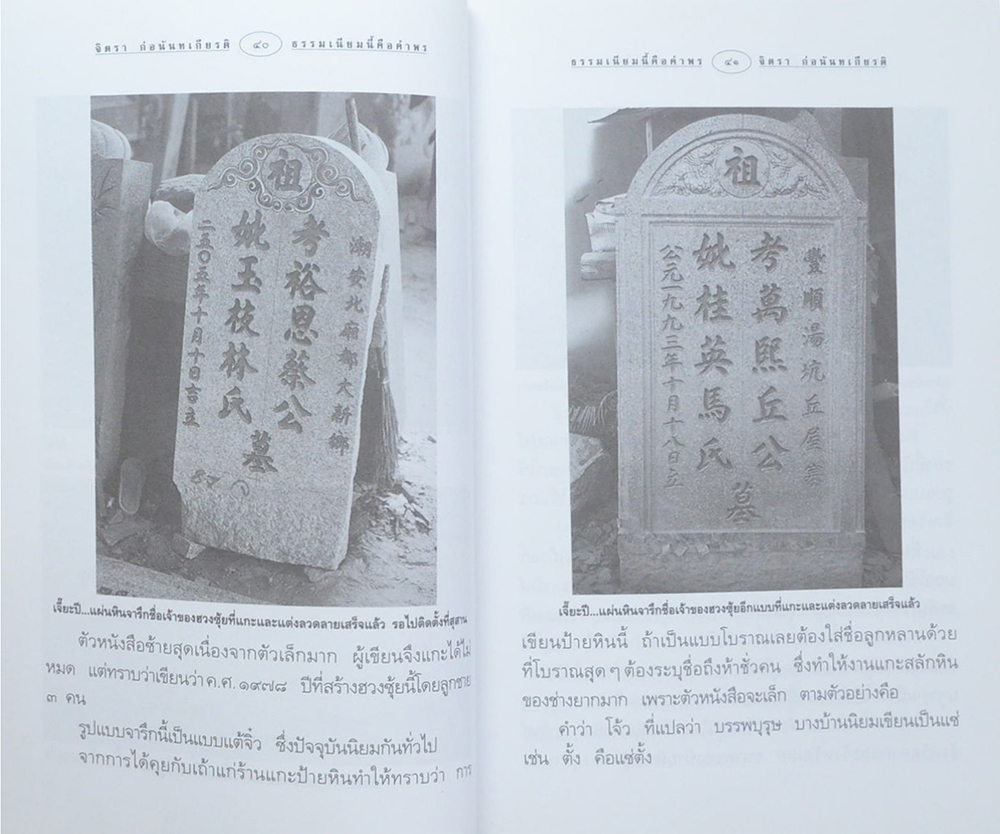 จิตรา ก่อนันทเกียรติ ๔๐ ธรรมเนียมนี้คือคำพร
祖
潮安北廂都大新鄉
考裕恩蔡公
妣玉枝林氏
墓
二五〇五年十月十日吉立
เจี๊ยะปี...แผ่นหินจารึกชื่อเจ้าของฮวงซุ้ยที่แกะและแต่งลวดลายเสร็จแล้ว รอไปติดตั้งที่สุสาน
ตัวหนังสือซ้ายสุดเนื่องจากตัวเล็กมาก ผู้เขียนจึงแกะได้ไม่
หมด แต่ทราบว่าเขียนว่า ค.ศ. ๑๙๗๘ ปีที่สร้างฮวงซุ้ยนี้โดยลูกชาย
๓ คน
รูปแบบจารึกนี้เป็นแบบแต้จิ๋ว ซึ่งปัจจุบันนิยมกันทั่วไป
จากการได้คุยกับเถ้าแก่ร้านแกะป้ายหินทำให้ทราบว่า การ
ธรรมเนียมนี้คือคำพร ๔๑ จิตรา ก่อนันทเกียรติ
祖
豐順湯坑丘屋寨
考萬熙丘公
妣桂英馬氏
墓
公元一九九三年十月十八日立
เจี๊ยะปี...แผ่นหินจารึกชื่อเจ้าของฮวงซุ้ยอีกแบบที่แกะและแต่งลวดลายเสร็จแล้ว
เขียนป้ายหินนี้ ถ้าเป็นแบบโบราณเลยต้องใส่ชื่อลูกหลานด้วย
ที่โบราณสุด ๆ ต้องระบุชื่อถึงห้าชั่วคน ซึ่งทำให้งานแกะสลักหิน
ของช่างยากมาก เพราะตัวหนังสือจะเล็ก ตามตัวอย่างคือ
คำว่า โจ้ว ที่แปลว่า บรรพบุรุษ บางบ้านนิยมเขียนเป็นแซ่
เช่น ตั้ง คือแซ่ตั้ง